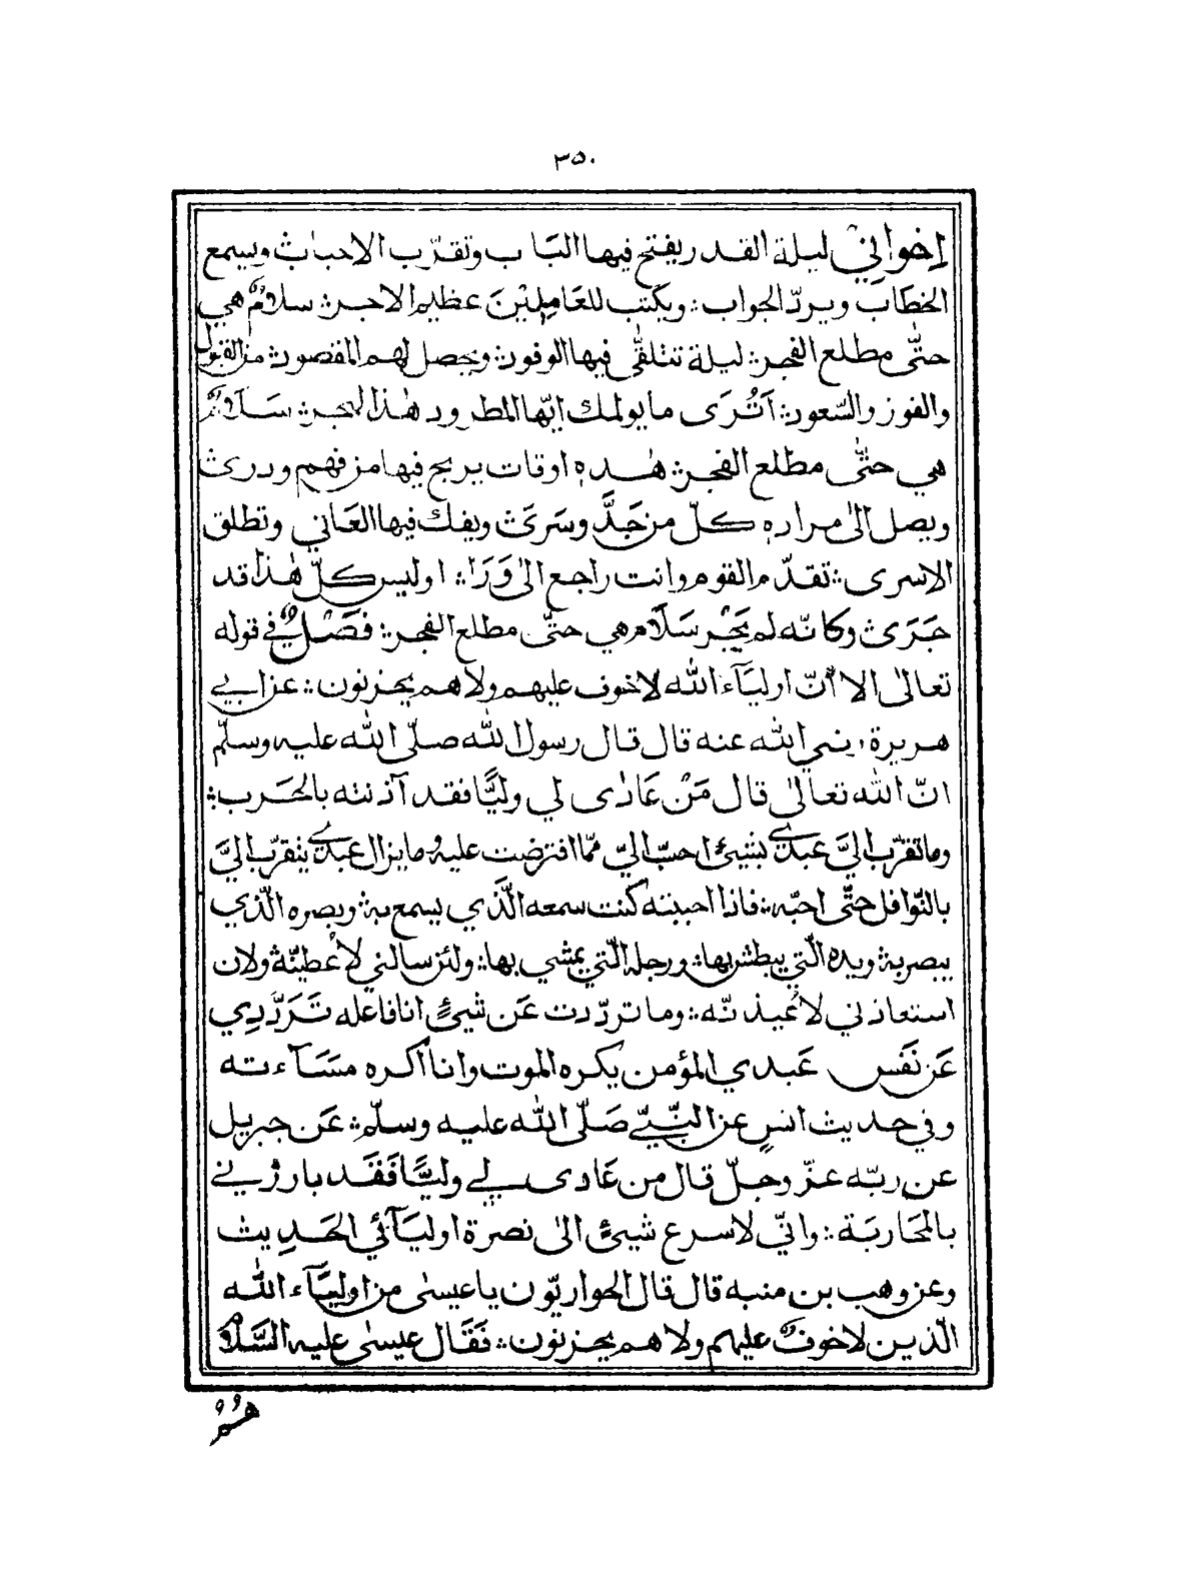 ٣٥٠
اخواني ليلة القدر يفتح فيها الباب وتقرّب الاحباب ويسمع
الخطاب ويردّ الجواب ؞ ويكتب للعاملين عظيم الاجر ؞ سلامٌ هي
حتّى مطلع الفجر ؞ ليلة تتلقّى فيها الوفود ؞ ويحصل لهم المقصود ؞ من القبول
والفوز والسّعود ؞ اَتُرَى ما يولمك ايّها المطرود هٰذا الهجر ؞ سَلَامٌ
هي حتّى مطلع الفجر ؞ هٰذه اوقات يربح فيها من فهم ودرى
ويصل الىٰ مراده كلّ من جَدَّ وسَرَى ويفك فيها العَاني وتطلق
الاسرى ؞ تقدّم القوم وانت راجع الىٰ وَرَا ؞ اوليس كلّ هٰذا قد
جَرَى وكانّه لم يَجْر سَلَام هي حتّى مطلع الفجر ؞ فصْلٌ في قوله
تعالىٰ الا اِنّ اوليَآء الله لاخوف عليهم ولا هم يحزنون ؞ عن ابي
هريرة رضي الله عنه قال قال رسول الله صلّى الله عليه وسلّم
انّ الله تعالىٰ قال مَنْ عَادٰى لي وليًّا فقد آذنته بالحَرب ؞
وما تقرّب اليَّ عبدي بشيئ احبّ اليّ ممّا افترضت عليه وما يزال عبدي يتقرّب اليَّ
بالنّوافل حتّى احبّه ؞ فاذا احببته كنت سمعه الّذي يسمع به ؞ وبصره الّذي
يبصر به ؞ ويده الّتي يبطش بها ؞ ورجله الّتي يمشي بها ؞ ولئن سالني لاُعطينّه ولان
استعاذني لاُعيذنّه ؞ وما تردّدت عَن شيئٍ انا فاعله تَرَدُّدِي
عَن نَفْس عَبدي المؤمن يكره الموت وانا اكره مسَآءته
وفي حديث انسٍ عن النّبيّ صَلّى الله عليه وسلّم ؞ عَن جبريل
عن ربّه عزّ وجلّ قال من عَادى لي وليًّا فَقَد بارزني
بالمحَاربَة ؞ وانّي لاسرع شيئٍ الىٰ نصرة اوليَآئي الحَدِيث
وعن وهب بن منبه قال قال الحواريّون يا عيسىٰ من اوليَآء الله
الّذين لاخوفٌ عليهم ولا هم يحزنون ؞ فَقَال عيسىٰ عليه السَّلام
هُمُ